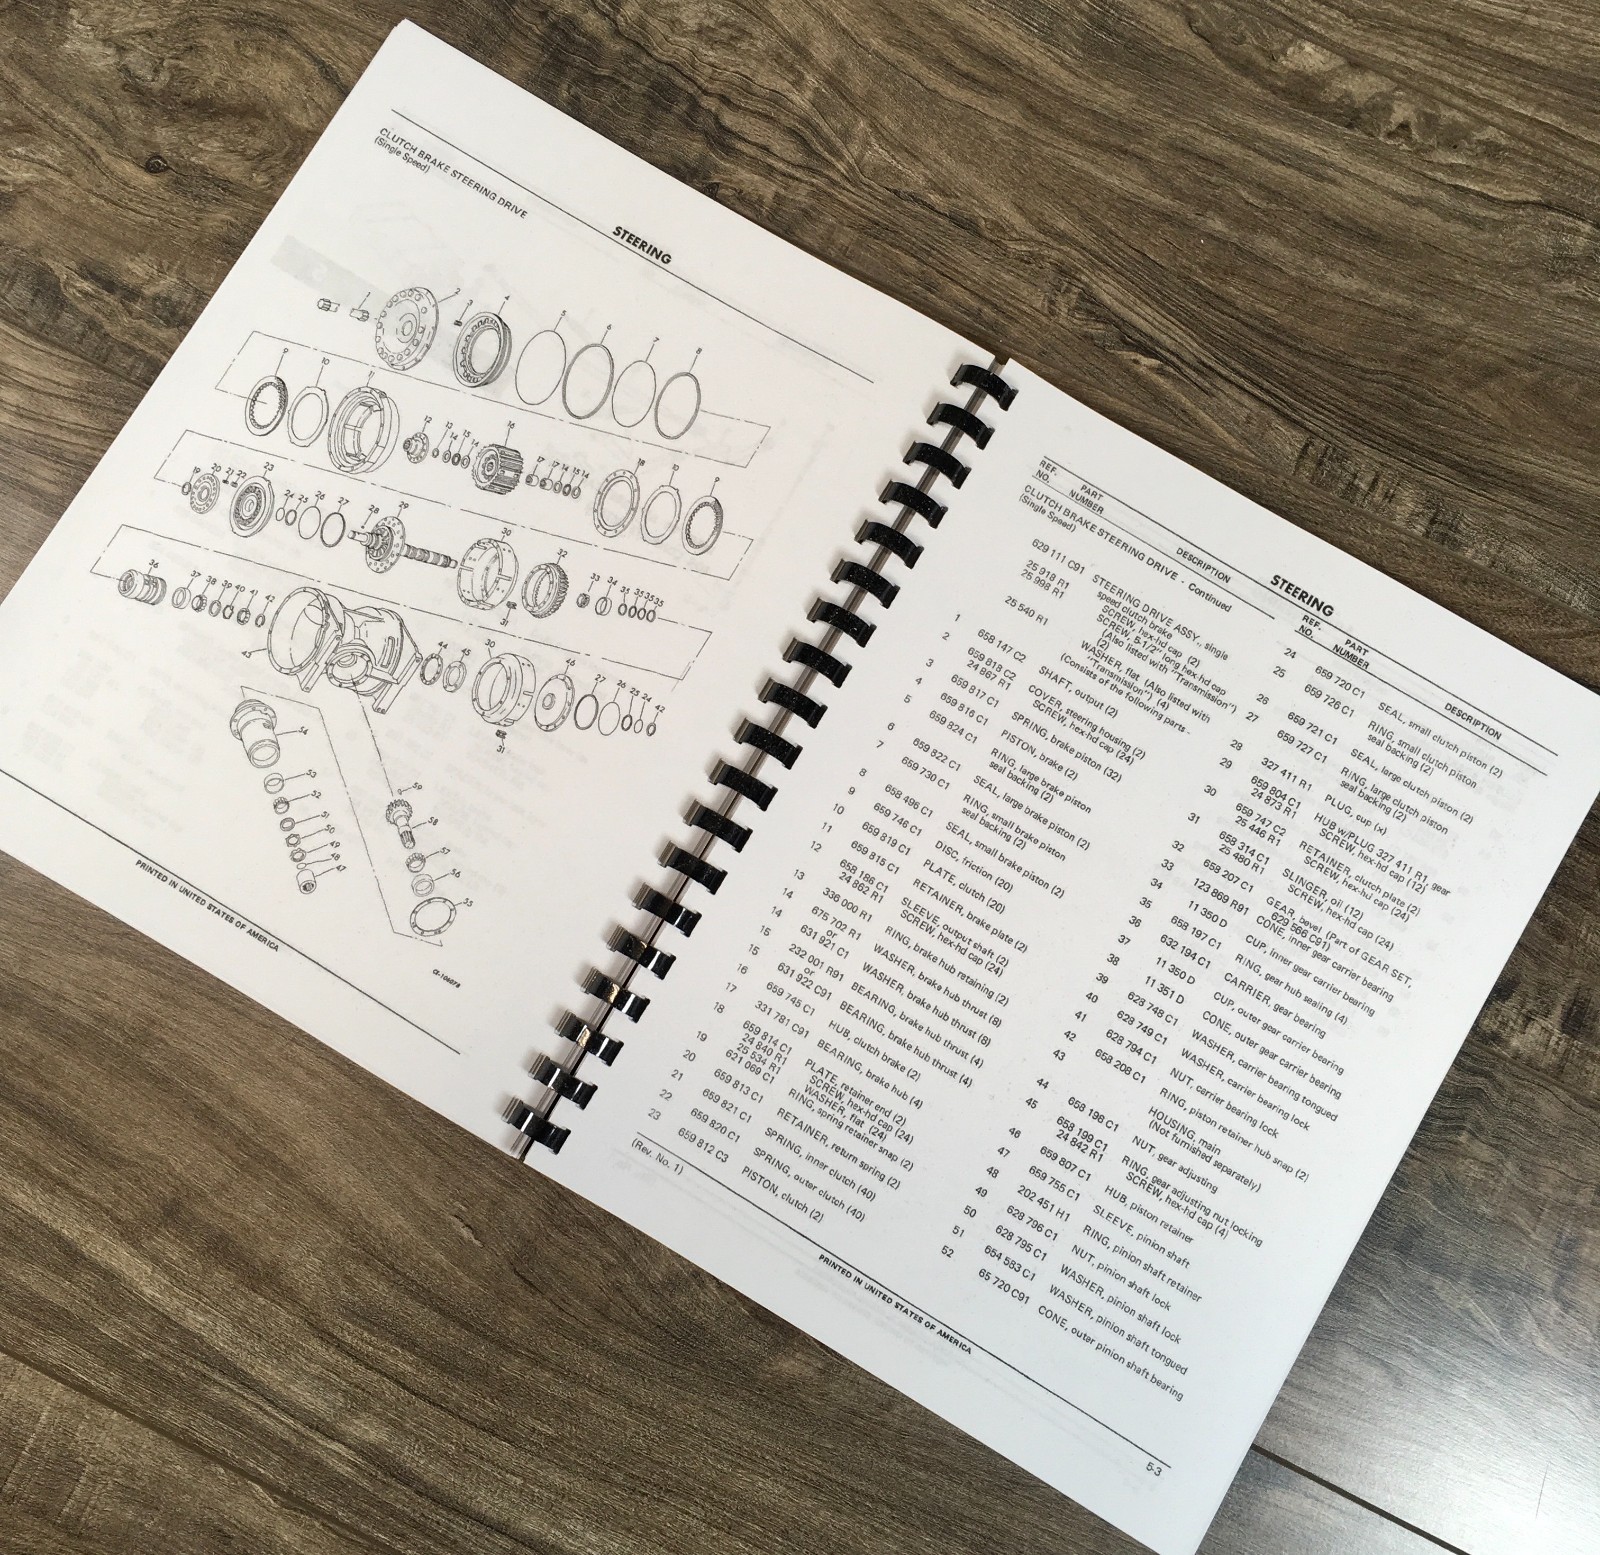 STEERING
CLUTCH BRAKE STEERING DRIVE
(Single Speed)
1
2
3
4
5
6
7
8
9
10
11
12
13
14
15
14
16
17
17
14
15
14
18
10
9
19
20
21
22
23
24
25
26
27
28
29
30
31
32
33
34
35
35
35
35
36
37
38
39
40
41
42
43
44
45
30
31
46
27
26
25
24
42
54
53
52
51
50
49
48
47
59
58
57
56
55
PRINTED IN UNITED STATES OF AMERICA
STEERING
REF. NO. PART NUMBER DESCRIPTION
CLUTCH BRAKE STEERING DRIVE - Continued
(Single Speed)
629 111 C91 STEERING DRIVE ASSY., single
speed clutch brake
25 918 R1 SCREW, hex-hd cap (2)
25 998 R1 SCREW, 5-1/2" long hex-hd cap
(Also listed with "Transmission")
(2)
25 540 R1 WASHER, flat (Also listed with
"Transmission") (4)
(Consists of the following parts -
1 658 147 C2 SHAFT, output (2)
2 659 818 C2 COVER, steering housing (2)
24 867 R1 SCREW, hex-hd cap (24)
3 659 817 C1 SPRING, brake piston (32)
4 659 816 C1 PISTON, brake (2)
5 659 824 C1 RING, large brake piston
seal backing (2)
6 659 822 C1 SEAL, large brake piston (2)
7 659 730 C1 RING, small brake piston
seal backing (2)
8 658 496 C1 SEAL, small brake piston (2)
9 659 746 C1 DISC, friction (20)
10 659 819 C1 PLATE, clutch (20)
11 659 815 C1 RETAINER, brake plate (2)
12 658 186 C1 SLEEVE, output shaft (2)
24 862 R1 SCREW, hex-hd cap (24)
13 336 000 R1 RING, brake hub retaining (2)
14 675 702 R1 WASHER, brake hub thrust (8)
or
14 631 921 C1 WASHER, brake hub thrust (8)
15 232 001 R91 BEARING, brake hub thrust (4)
or
15 631 922 C91 BEARING, brake hub thrust (4)
16 659 745 C1 HUB, clutch brake (2)
17 331 781 C91 BEARING, brake hub (4)
18 659 814 C1 PLATE, retainer end (2)
24 840 R1 SCREW, hex-hd cap (24)
25 534 R1 WASHER, flat (24)
19 621 069 C1 RING, spring retainer snap (2)
20 659 813 C1 RETAINER, return spring (2)
21 659 821 C1 SPRING, inner clutch (40)
22 659 820 C1 SPRING, outer clutch (40)
23 659 812 C3 PISTON, clutch (2)
REF. NO. PART NUMBER DESCRIPTION
24 659 720 C1 SEAL, small clutch piston (2)
25 659 726 C1 RING, small clutch piston
seal backing (2)
26 659 721 C1 SEAL, large clutch piston (2)
27 659 727 C1 RING, large clutch piston
seal backing (2)
28 327 411 R1 PLUG, cup (x)
29 659 804 C1 HUB w/PLUG 327 411 R1, gear
24 873 R1 SCREW, hex-hd cap (12)
30 659 747 C2 RETAINER, clutch plate (2)
25 446 R1 SCREW, hex-hd cap (24)
31 658 314 C1 SLINGER, oil (12)
25 480 R1 SCREW, hex-hd cap (24)
32 658 207 C1 GEAR, bevel (Part of GEAR SET,
629 566 C91)
33 123 869 R91 CONE, inner gear carrier bearing
34 11 350 D CUP, inner gear carrier bearing
35 658 197 C1 RING, gear hub sealing (4)
36 632 194 C1 CARRIER, gear bearing
37 11 350 D CUP, outer gear carrier bearing
38 11 351 D CONE, outer gear carrier bearing
39 628 748 C1 WASHER, carrier bearing tongued
40 628 749 C1 WASHER, carrier bearing lock
41 628 794 C1 NUT, carrier bearing lock
42 658 208 C1 RING, piston retainer hub snap (2)
43 HOUSING, main
(Not furnished separately)
44 658 198 C1 NUT, gear adjusting
45 658 199 C1 RING, gear adjusting nut locking
24 842 R1 SCREW, hex-hd cap (4)
46 659 807 C1 HUB, piston retainer
47 659 755 C1 SLEEVE, pinion shaft
48 202 451 H1 RING, pinion shaft retainer
49 628 796 C1 NUT, pinion shaft lock
50 628 795 C1 WASHER, pinion shaft lock
51 654 583 C1 WASHER, pinion shaft tongued
52 65 720 C91 CONE, outer pinion shaft bearing
(Rev. No. 1)
PRINTED IN UNITED STATES OF AMERICA
5-3